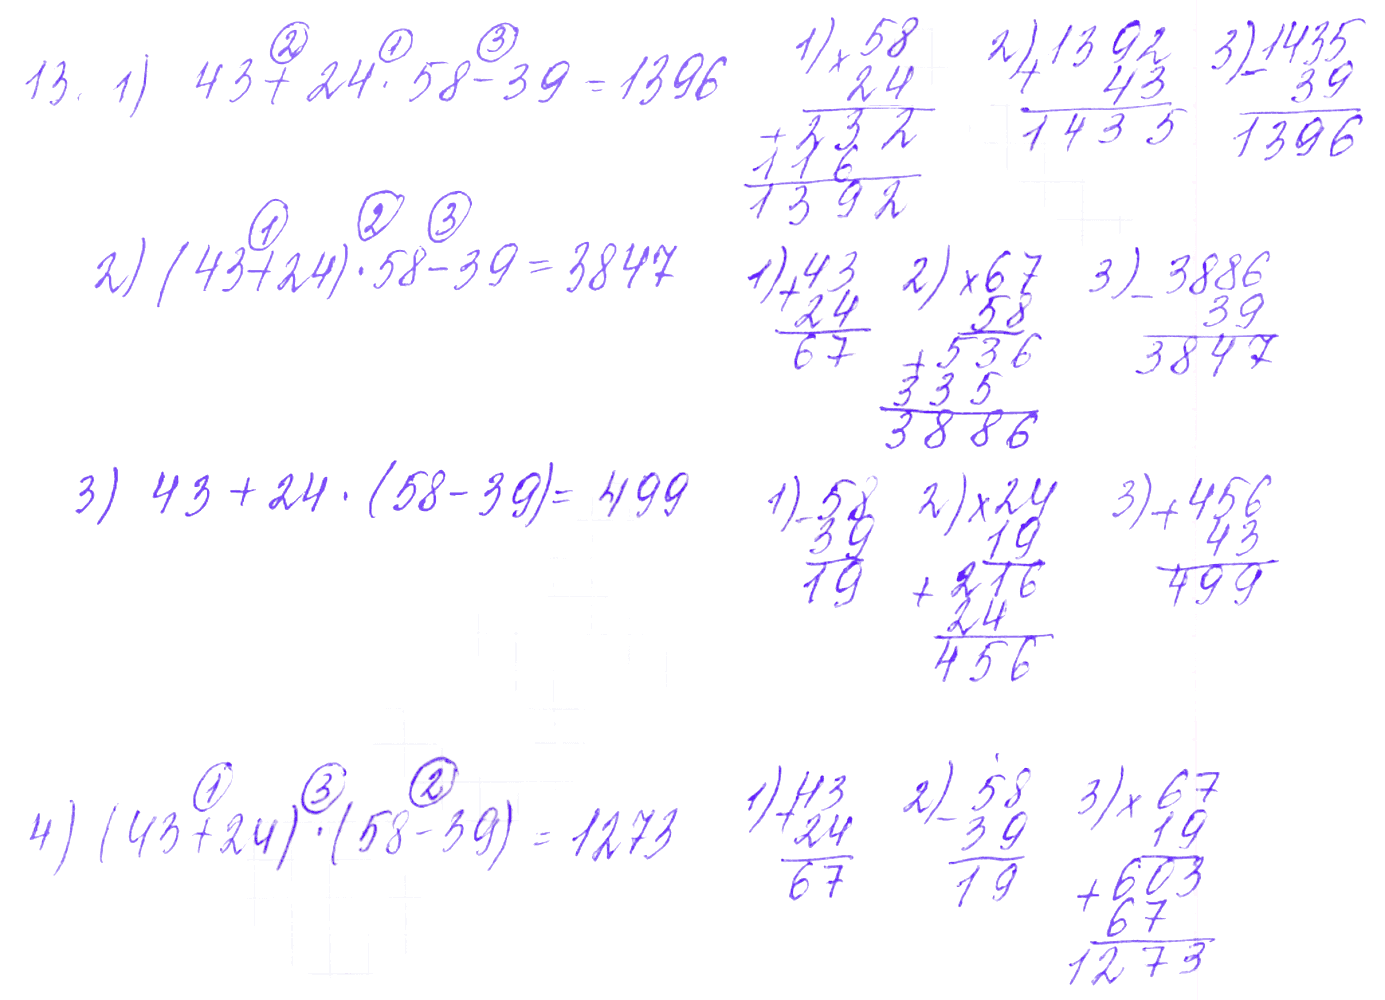 13. 1) 43 + 24 · 58 - 39 = 1396
② ① ③
1) × 58
24
+ 232
116
1392
2) + 1392
43
1435
3) - 1435
39
1396
2) (43 + 24) · 58 - 39 = 3847
① ② ③
1) + 43
24
67
2) × 67
58
+ 536
335
3886
3) - 3886
39
3847
3) 43 + 24 · (58 - 39) = 499
1) - 58
39
19
2) × 24
19
+ 216
24
456
3) + 456
43
499
4) (43 + 24) · (58 - 39) = 1273
① ③ ②
1) + 43
24
67
2) - 58
39
19
3) × 67
19
+ 603
67
1273